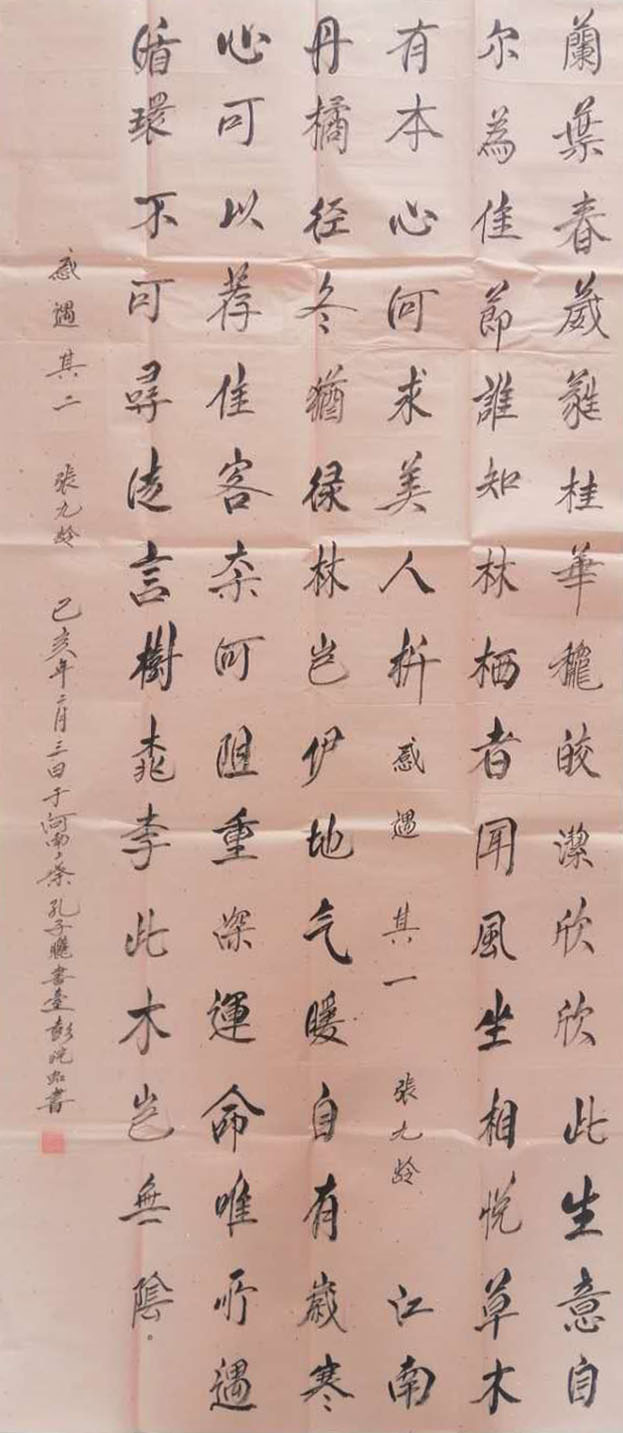 蘭葉春葳蕤桂華穠皎潔欣欣此生意自
尔為佳節誰知林栖者闻風坐相悦草木
有本心何求美人折感遇其一張九龄江南
丹橘径冬猶绿林岂伊地气暖自有歲寒
心可以荐佳客柰何阻重深運命唯所遇
循環不可尋徒言樹桃李此木岂無陰。
感遇其二張九龄己亥年二月三日于河南